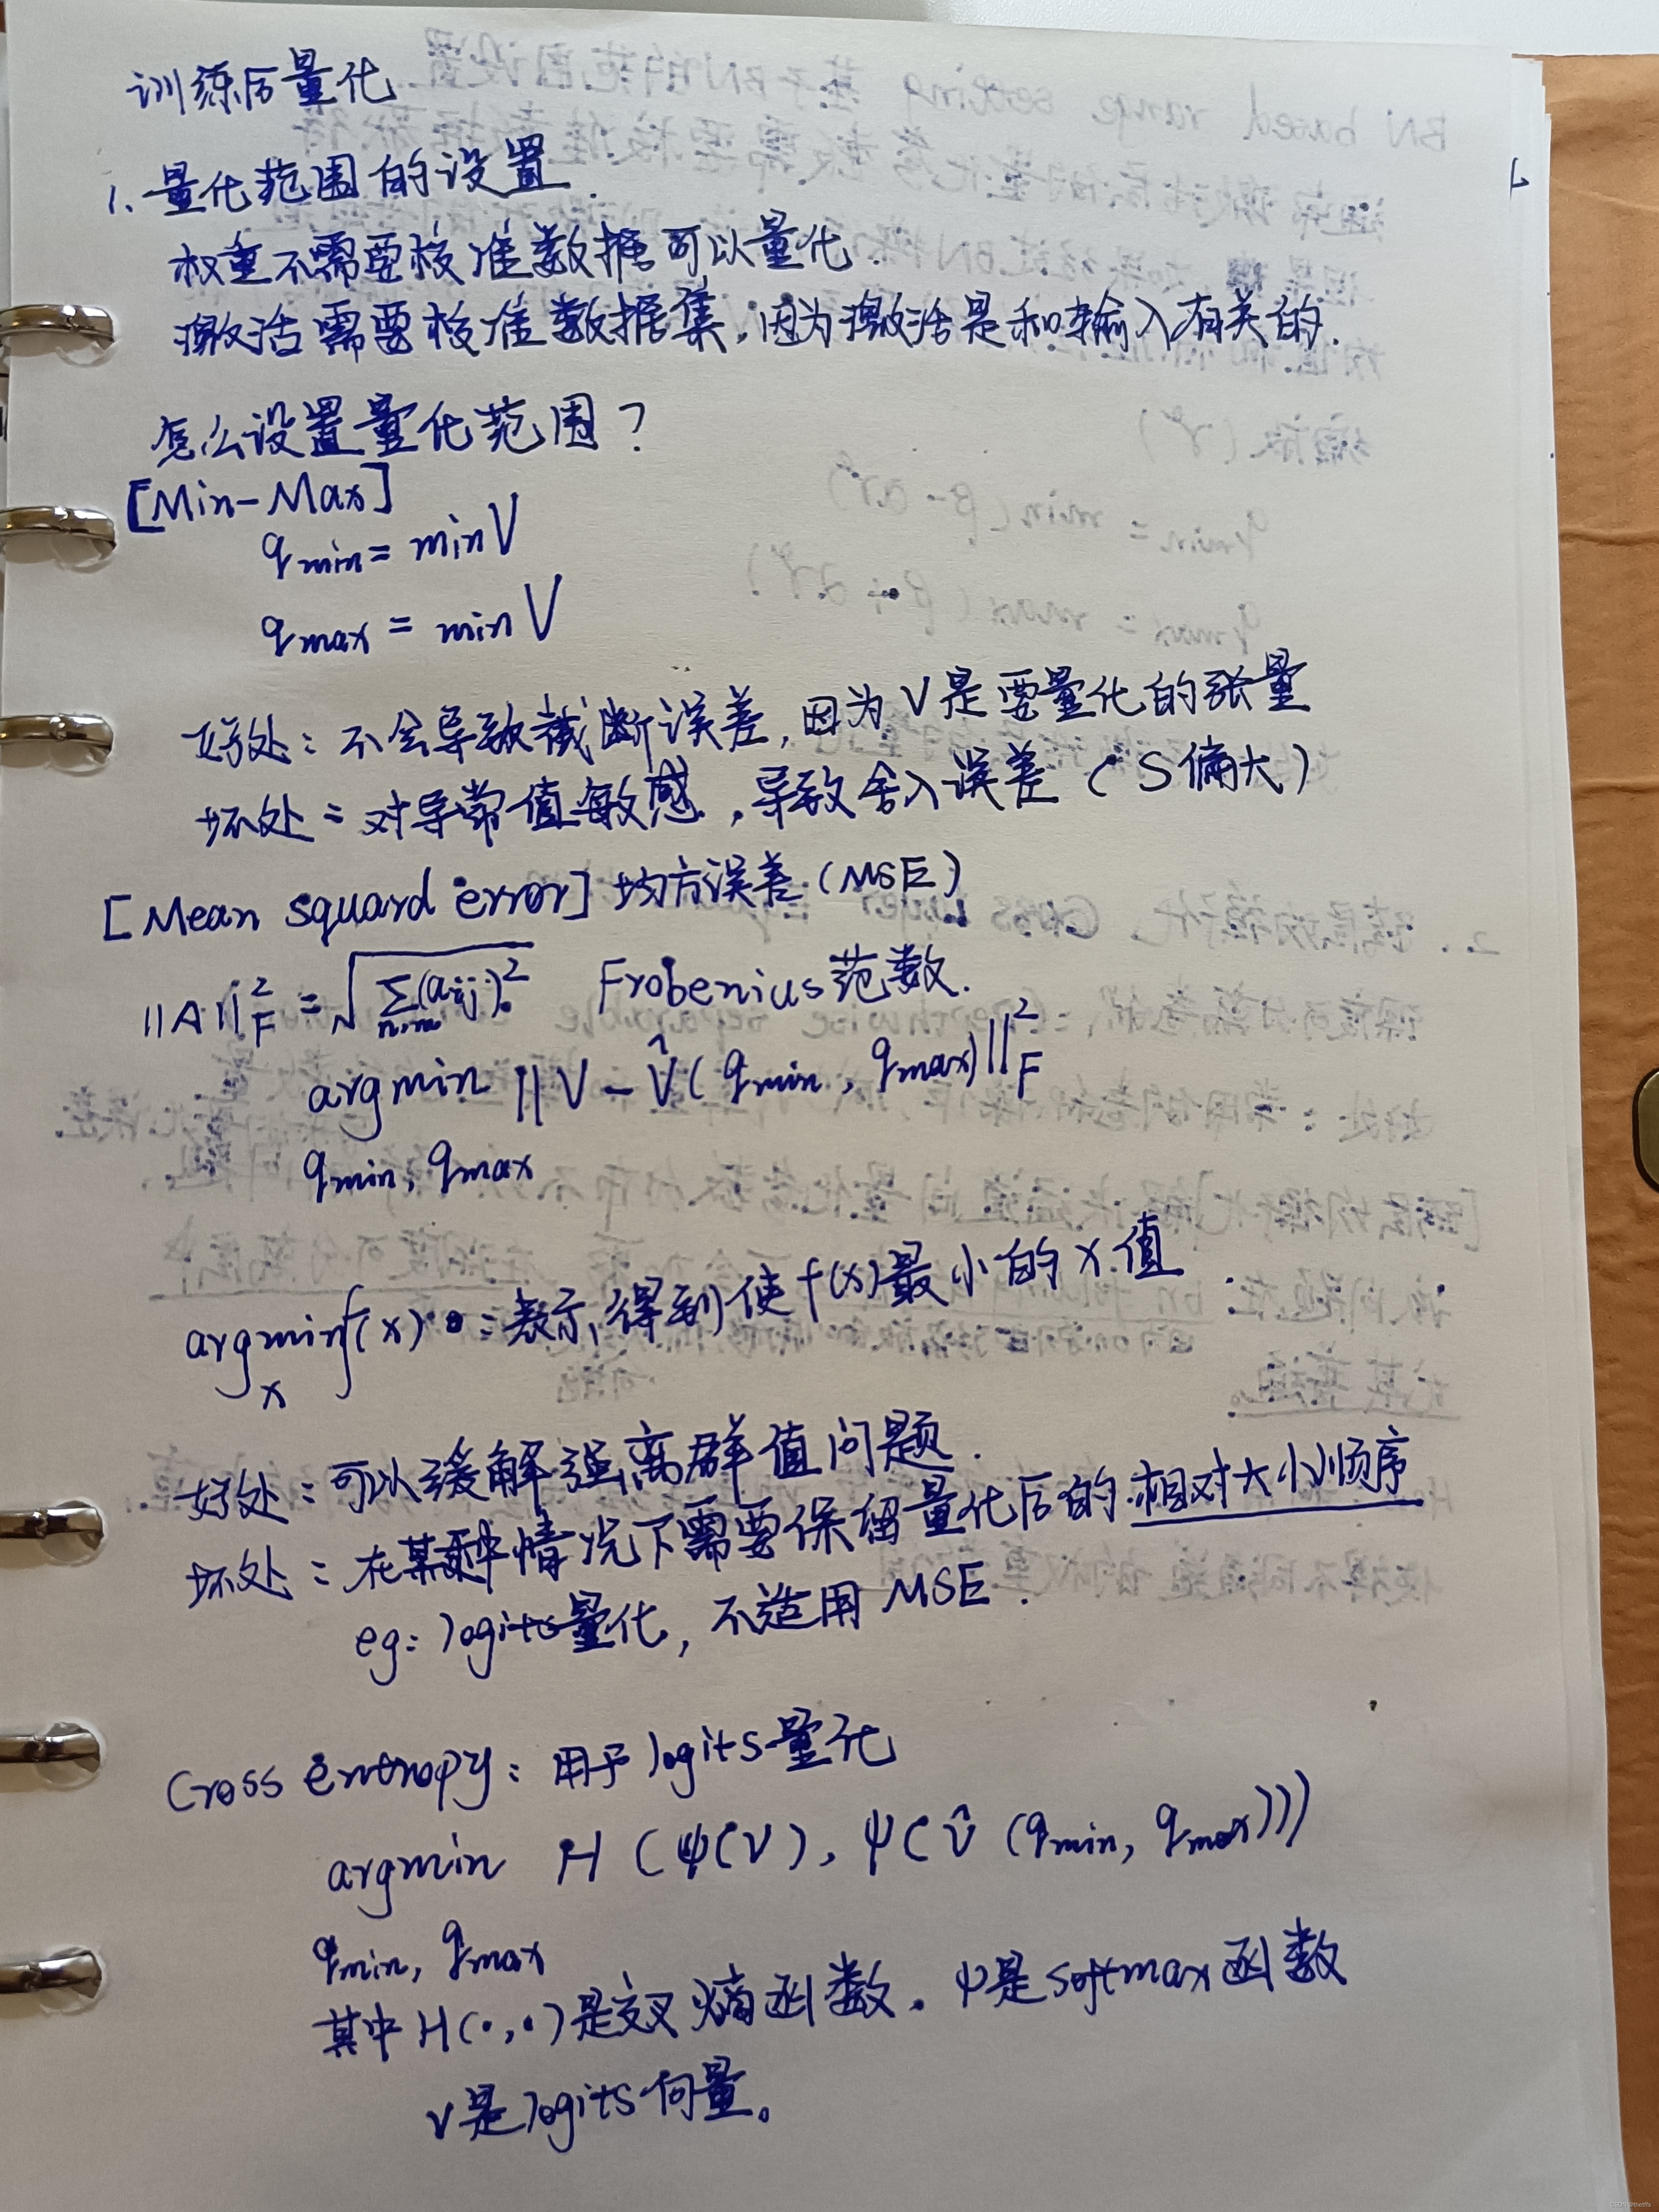 训练后量化
1. 量化范围的设置.
权重不需要校准数据可以量化.
激活需要校准数据集,因为激活是和输入有关的.
怎么设置量化范围?
[Min-Max]
qmin = min V
qmax = min V
好处: 不会导致截断误差,因为 V 是要量化的张量
坏处: 对导常值敏感,导致舍入误差 (S偏大)
[Mean squard error] 均方误差 (MSE)
||A||²_F = √Σ(aij)² Frobenius范数.
argmin ||V - V̂(qmin, qmax)||²_F
qmin, qmax
argmin f(x) : 表示,得到使 f(x) 最小的 x 值
x
好处: 可以缓解强离群值问题.
坏处: 在某种情况下需要保留量化后的相对大小顺序
eg: logits量化, 不适用 MSE.
Cross entropy: 用于 logits 量化
argmin H (ψ(V), ψ(v̂ (qmin, qmax)))
qmin, qmax
其中 H(·,·) 是交叉熵函数. ψ是softmax函数
v是logits向量。